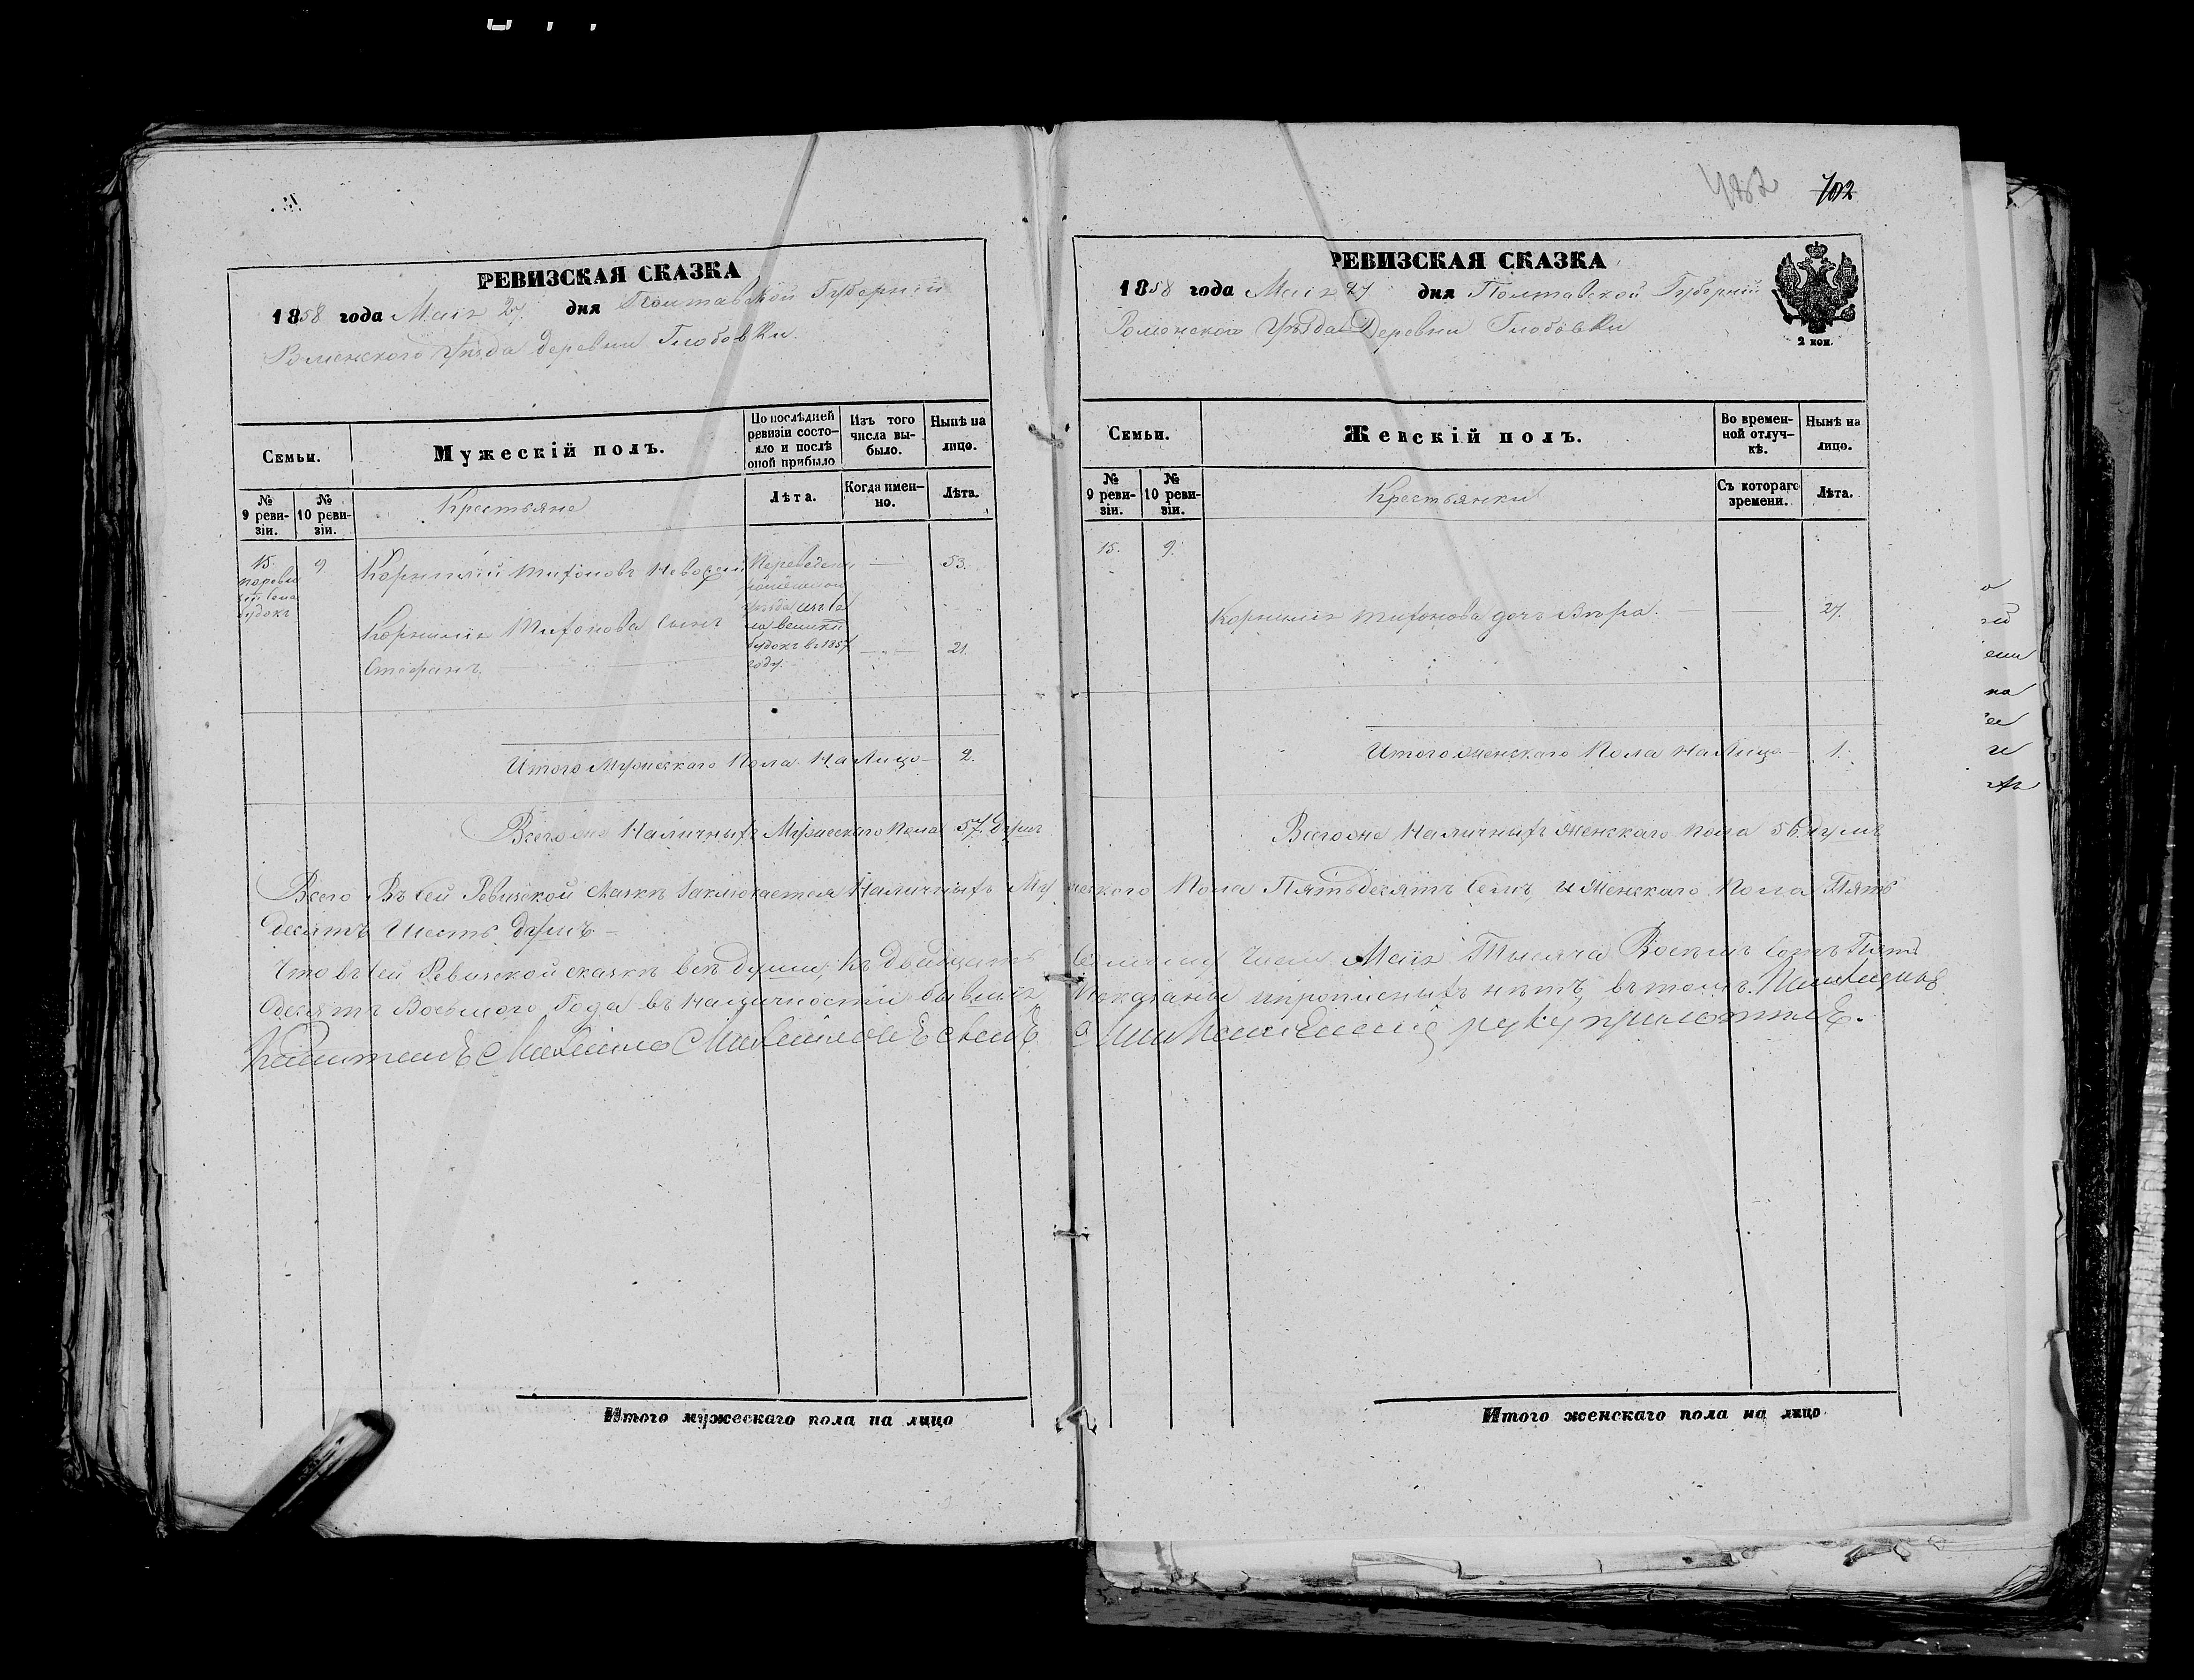 РЕВИЗСКАЯ СКАЗКА
1858 года Маія 27 дня Полтавской Губерніи
Роменского Уѣзда деревни Глобовки.
Семьи.
Мужескій полъ.
По послѣдней ревизіи состояло и послѣ оной прибыло
Изъ того числа выбыло.
Нынѣ на лицо.
№ 9 ревизіи.
№ 10 ревизіи.
Крестьяне
Лѣта.
Когда именно.
Лѣта.
15.
9
Корнилій Тифоновъ
53.
Корнилія Тифонова сынъ
Стефанъ.
будокъ въ 1857
году.
21.
Итого Мужескаго Пола На Лицо 2.
Всего же Наличныхъ Мужескаго Пола 57. душъ
РЕВИЗСКАЯ СКАЗКА
702
1858 года Маія 27 дня Полтавской Губерніи
Роменского Уѣзда Деревни Глобовки
2 коп.
Семьи.
Женскій полъ.
Во временной отлучкѣ.
Нынѣ на лицо.
№ 9 ревизіи.
№ 10 ревизіи.
Крестьянки
Съ котораго времени.
Лѣта.
15. 9.
Корнилія Тифонова дочь Вѣра. 27.
Итого Женскаго Пола На Лицо 1.
Всего же Наличныхъ Женскаго Пола 56. душъ
Всего Въ сей Ревизской Сказкѣ Заключается Наличныхъ Мужеского Пола Пятьдесятъ Семь, и Женскаго Пола Пять
десятъ Шесть душъ
Что въ сей Ревизской сказкѣ всѣ души, къ двадцать Седьмому Маія Тысяча Восемь Сотъ Пять
десятъ Восьмого Года въ наличности бывшія показаны и прописныхъ нѣтъ въ томъ
Капитанъ Михайло Михайловъ сынъ руку приложилъ.
Итого мужескаго пола на лицо
Итого женскаго пола на лицо